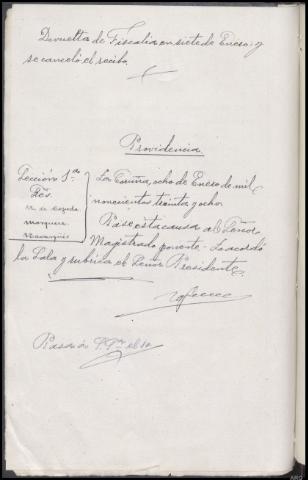 Devuelta de Fiscalia en siete de Enero y
se canceló el recibo.
Providencia
Sección 1ª
Sres.
Marquera
La Coruña, ocho de Enero de mil
novecientos treinta y ocho.
Pase esta causa al Señor
Magistrado ponente. Lo acordó
la Sala y rubrica el Señor Presidente.
Pasa